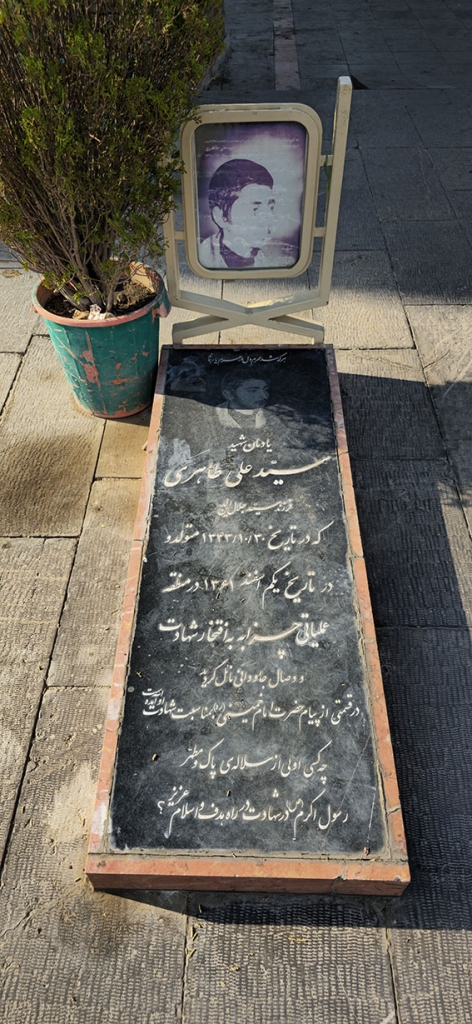 یادمان شهید
سید علی طاهری
فرزند سید جلال الدین
که در تاریخ ۱۳۳۳/۱۰/۳۰ متولد و
در تاریخ یکم اسفند ۱۳۶۱ در منطقه
علمیاتی چزابه به افتخار شهادت
و وصال جاودانی نائل گردید
در قسمتی از پیام حضرت امام خمینی (ره) بمناسبت شهادت او آمده است
چه کسی اولی از سلاله‌ی پاک و مطهر
رسول اکرم (ص) در شهادت در راه هدف و اسلام عزیز؟